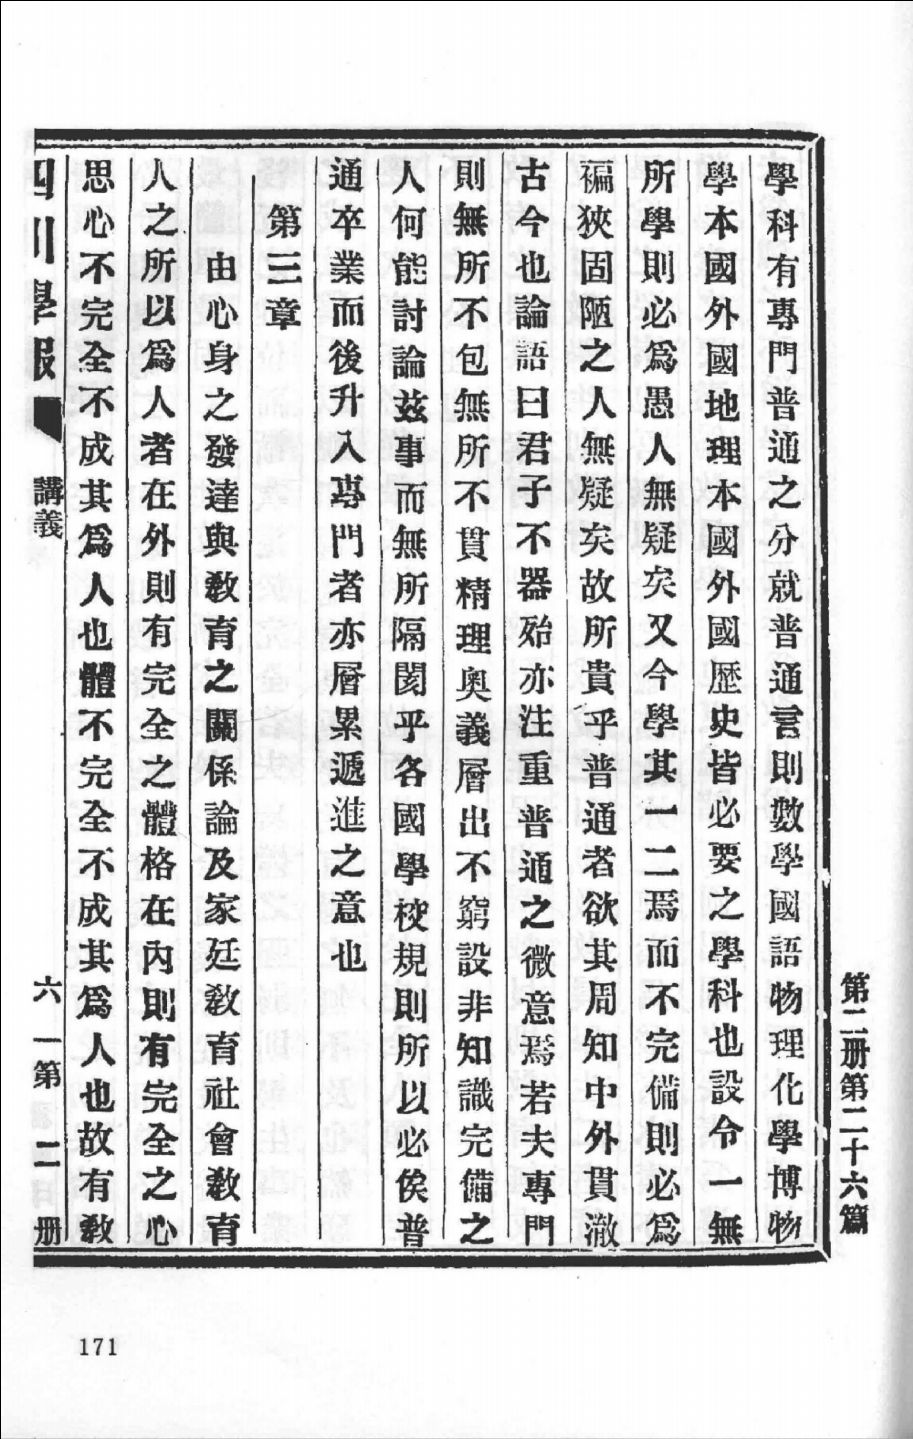 第二册第二十六篇
學科有專門普通之分就普通言則數學國語物理化學博物
學本國外國地理本國外國歷史皆必要之學科也設令一無
所學則必爲愚人無疑矣又今學其一二焉而不完備則必爲
褊狹固陋之人無疑矣故所貴乎普通者欲其周知中外貫澈
古今也論語曰君子不器殆亦注重普通之微意焉若夫專門
則無所不包無所不貫精理奧義層出不窮設非知識完備之
人何能討論茲事而無所隔閡乎各國學校規則所以必俟普
通卒業而後升入專門者亦層累遞進之意也
第三章
由心身之發達與敎育之關係論及家廷敎育社會敎育
人之所以爲人者在外則有完全之體格在內則有完全之心
思心不完全不成其爲人也體不完全不成其爲人也故有敎
四川學報 講義 六 一第二册
171